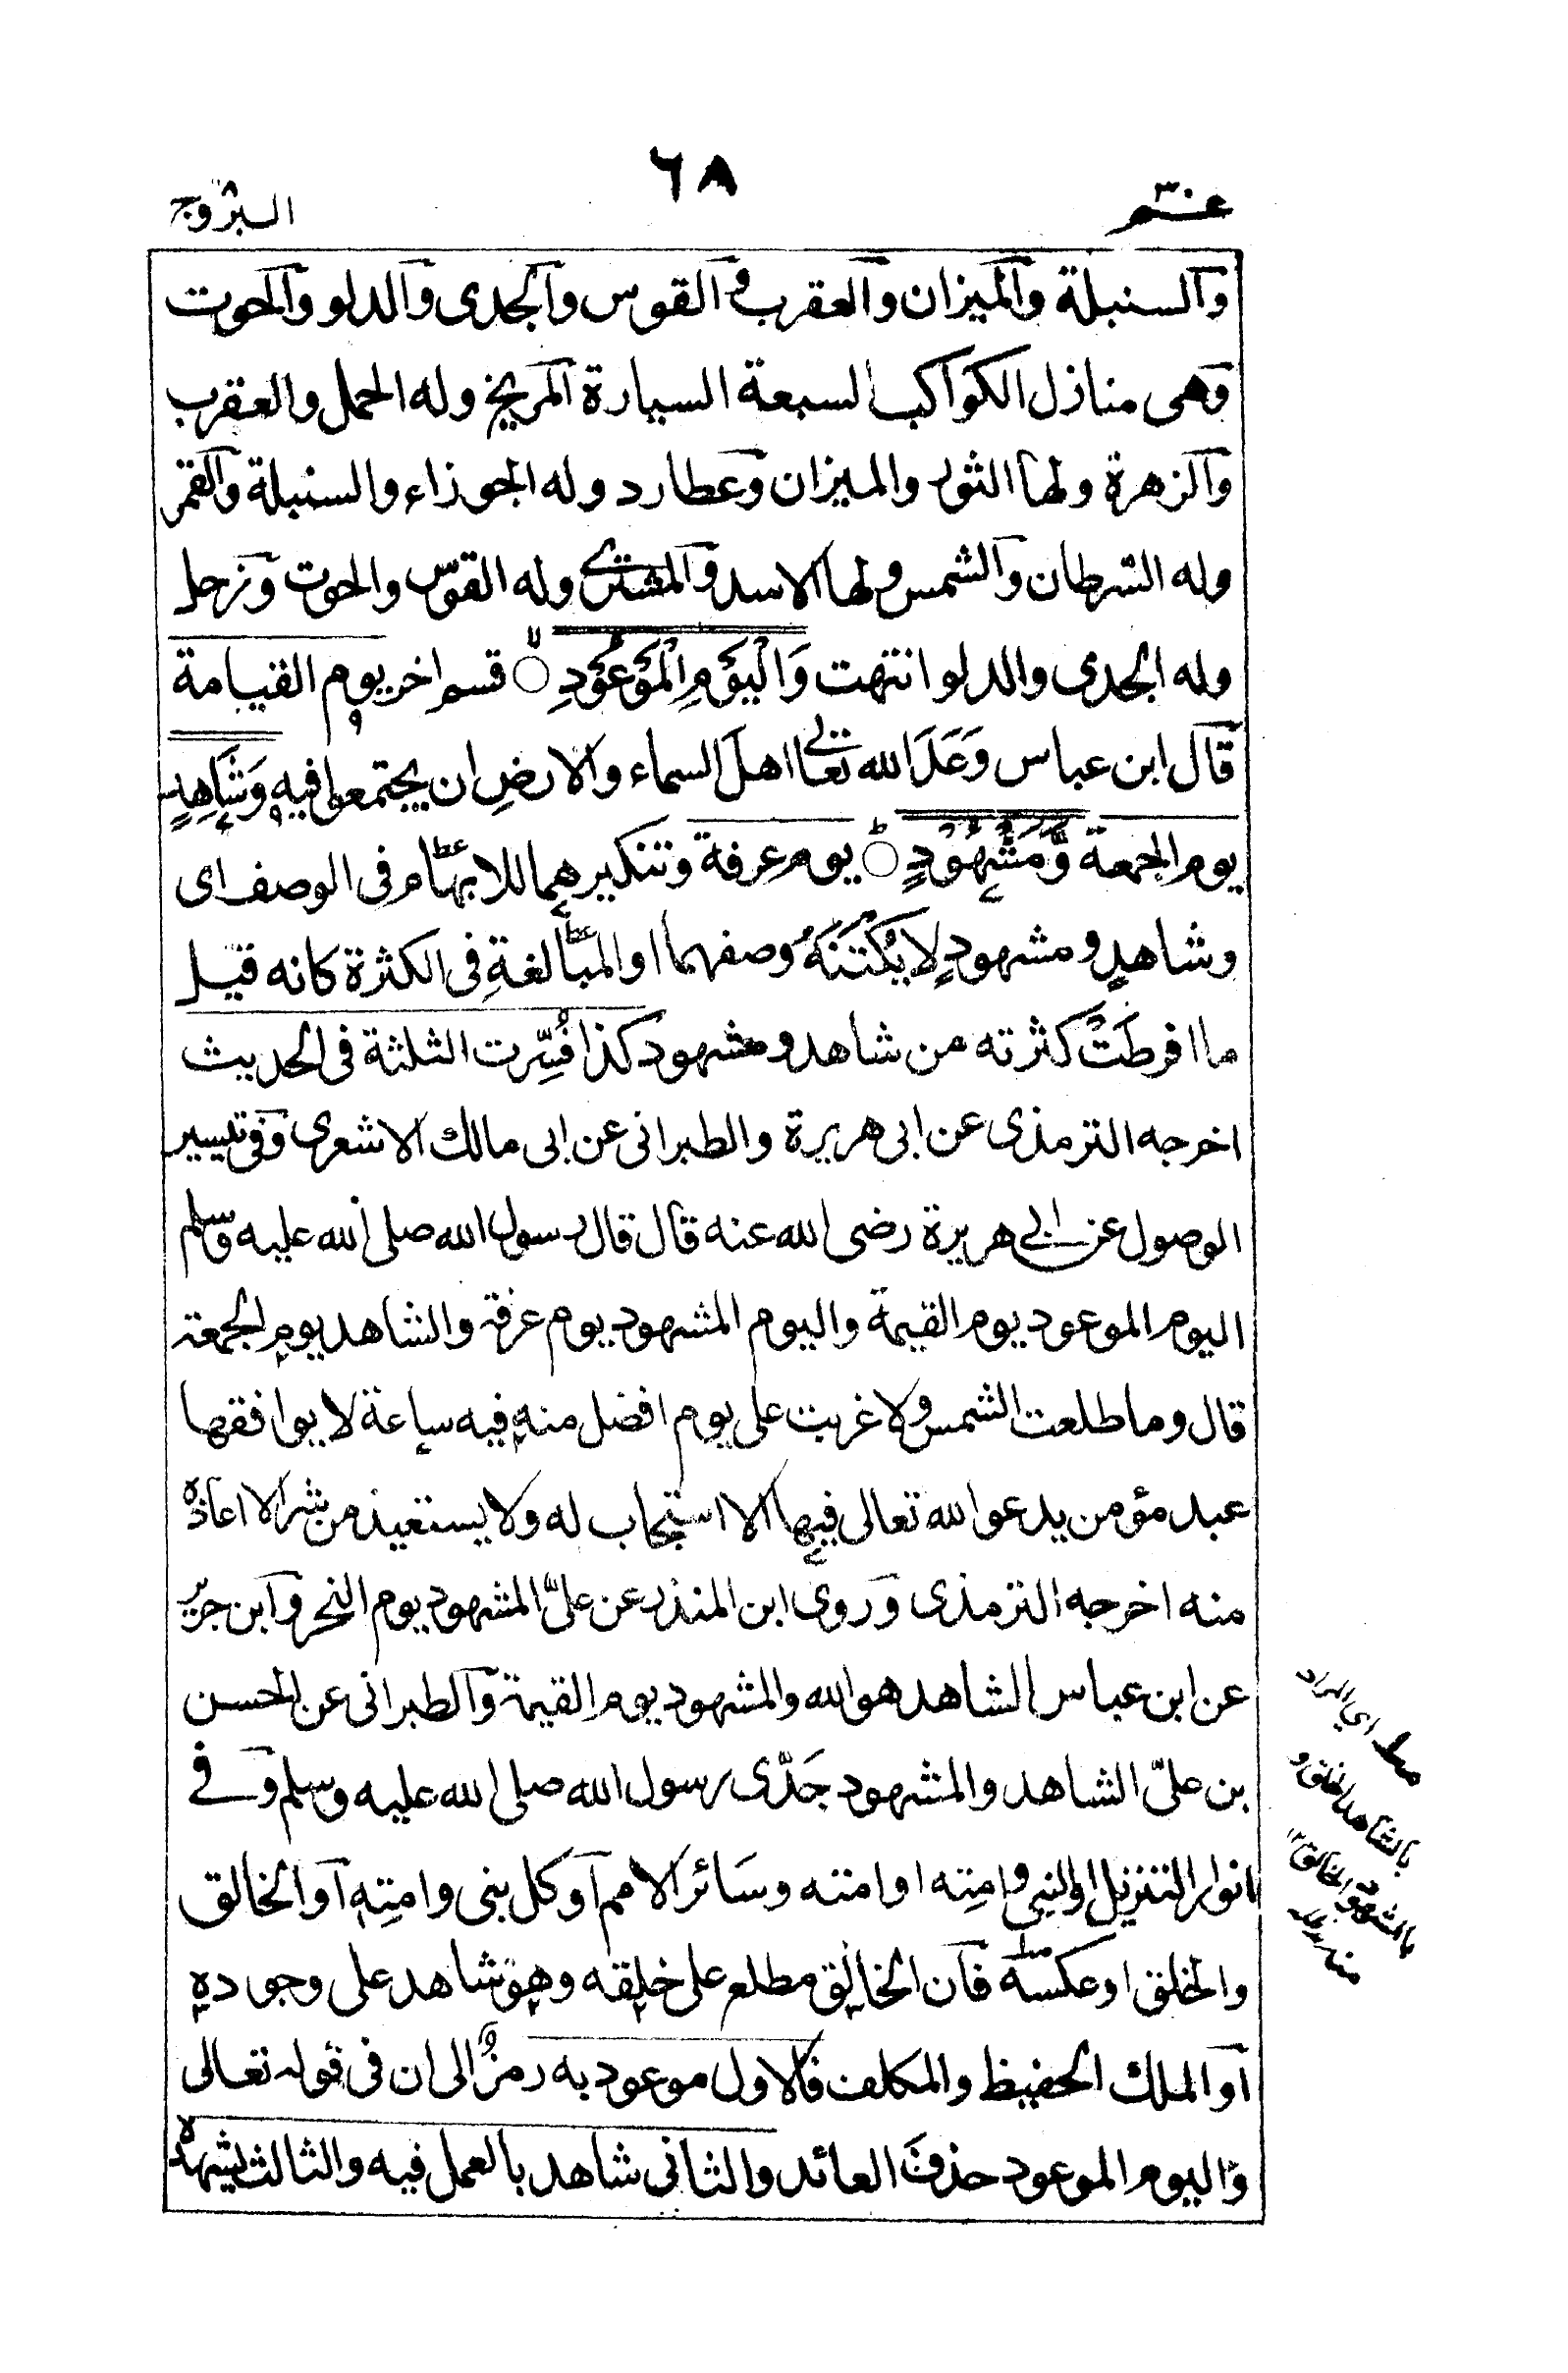 عم ٣٠
٦٨
البروج
والسنبلة والميزان والعقرب والقوس والجدى والدلو والحوت
وهى منازل الكواكب السبعة السيارة المريخ وله الحمل والعقرب
والزهرة ولها الثور والميزان وعطارد وله الجوزاء والسنبلة والقمر
وله السرطان والشمس ولها الاسد والمشترى وله القوس والحوت وزحل
وله الجدى والدلو انتهت وَالْيَوْمِ الْمَوْعُوْدِ ۙ قسم اخر يوم القيامة
قال ابن عباس وَعَدَ الله تعالى اهلَ السماء والارضِ ان يجتمعوا فيه وَشَاهِدٍ
يوم الجمعة وَّمَشْهُوْدٍ ؕ يوم عرفة وتنكيرهما للابهام فى الوصف اى
وشاهدٍ ومشهودٍ لا يُكْتَنَهُ وصفهما او المبالغةِ فى الكثرة كانه قيل
ما افرطَتْ كثرته من شاهد ومشهود كذا فُسِّرت الثلثة فى الحديث
اخرجه الترمذى عن ابى هريرة والطبرانى عن ابى مالك الاشعرى وفى تيسير
الوصول عن ابى هريرة رضى الله عنه قال قال رسول الله صلى الله عليه وسلم
اليوم الموعود يوم القيمة واليوم المشهود يوم عرفة والشاهد يوم الجمعة
قال وما طلعت الشمس ولا غربت على يوم افضل منه فيه ساعة لا يوافقها
عبد مؤمن يدعوا لله تعالى فيها الا استجاب له ولا يستعيذ من شر الا اعاذه
منه اخرجه الترمذى وروى ابن المنذر عن علىّ المشهود يوم النحر وابن جرير
عن ابن عباس الشاهد هو الله والمشهود يوم القيمة والطبرانى عن الحسن
بن علىّ الشاهد والمشهود جَدِّى رسول الله صلى الله عليه وسلم وفى
انوار التنزيل او النبى وامته او امته وسائر الامم او كل نبى وامته او الخالق
والخلق او عكسه فان الخالق مطلع على خلقه وهو شاهد على وجوده
او الملك الحفيظ والمكلف فالاول موعود به رمزٌ الى ان فى قوله تعالى
واليوم الموعود حذفَ العائد والثانى شاهد بالعمل فيه والثالث يشهده
اي المراد
بالشاهد الخلق و
بالمشهود الخالق ١٢
منه